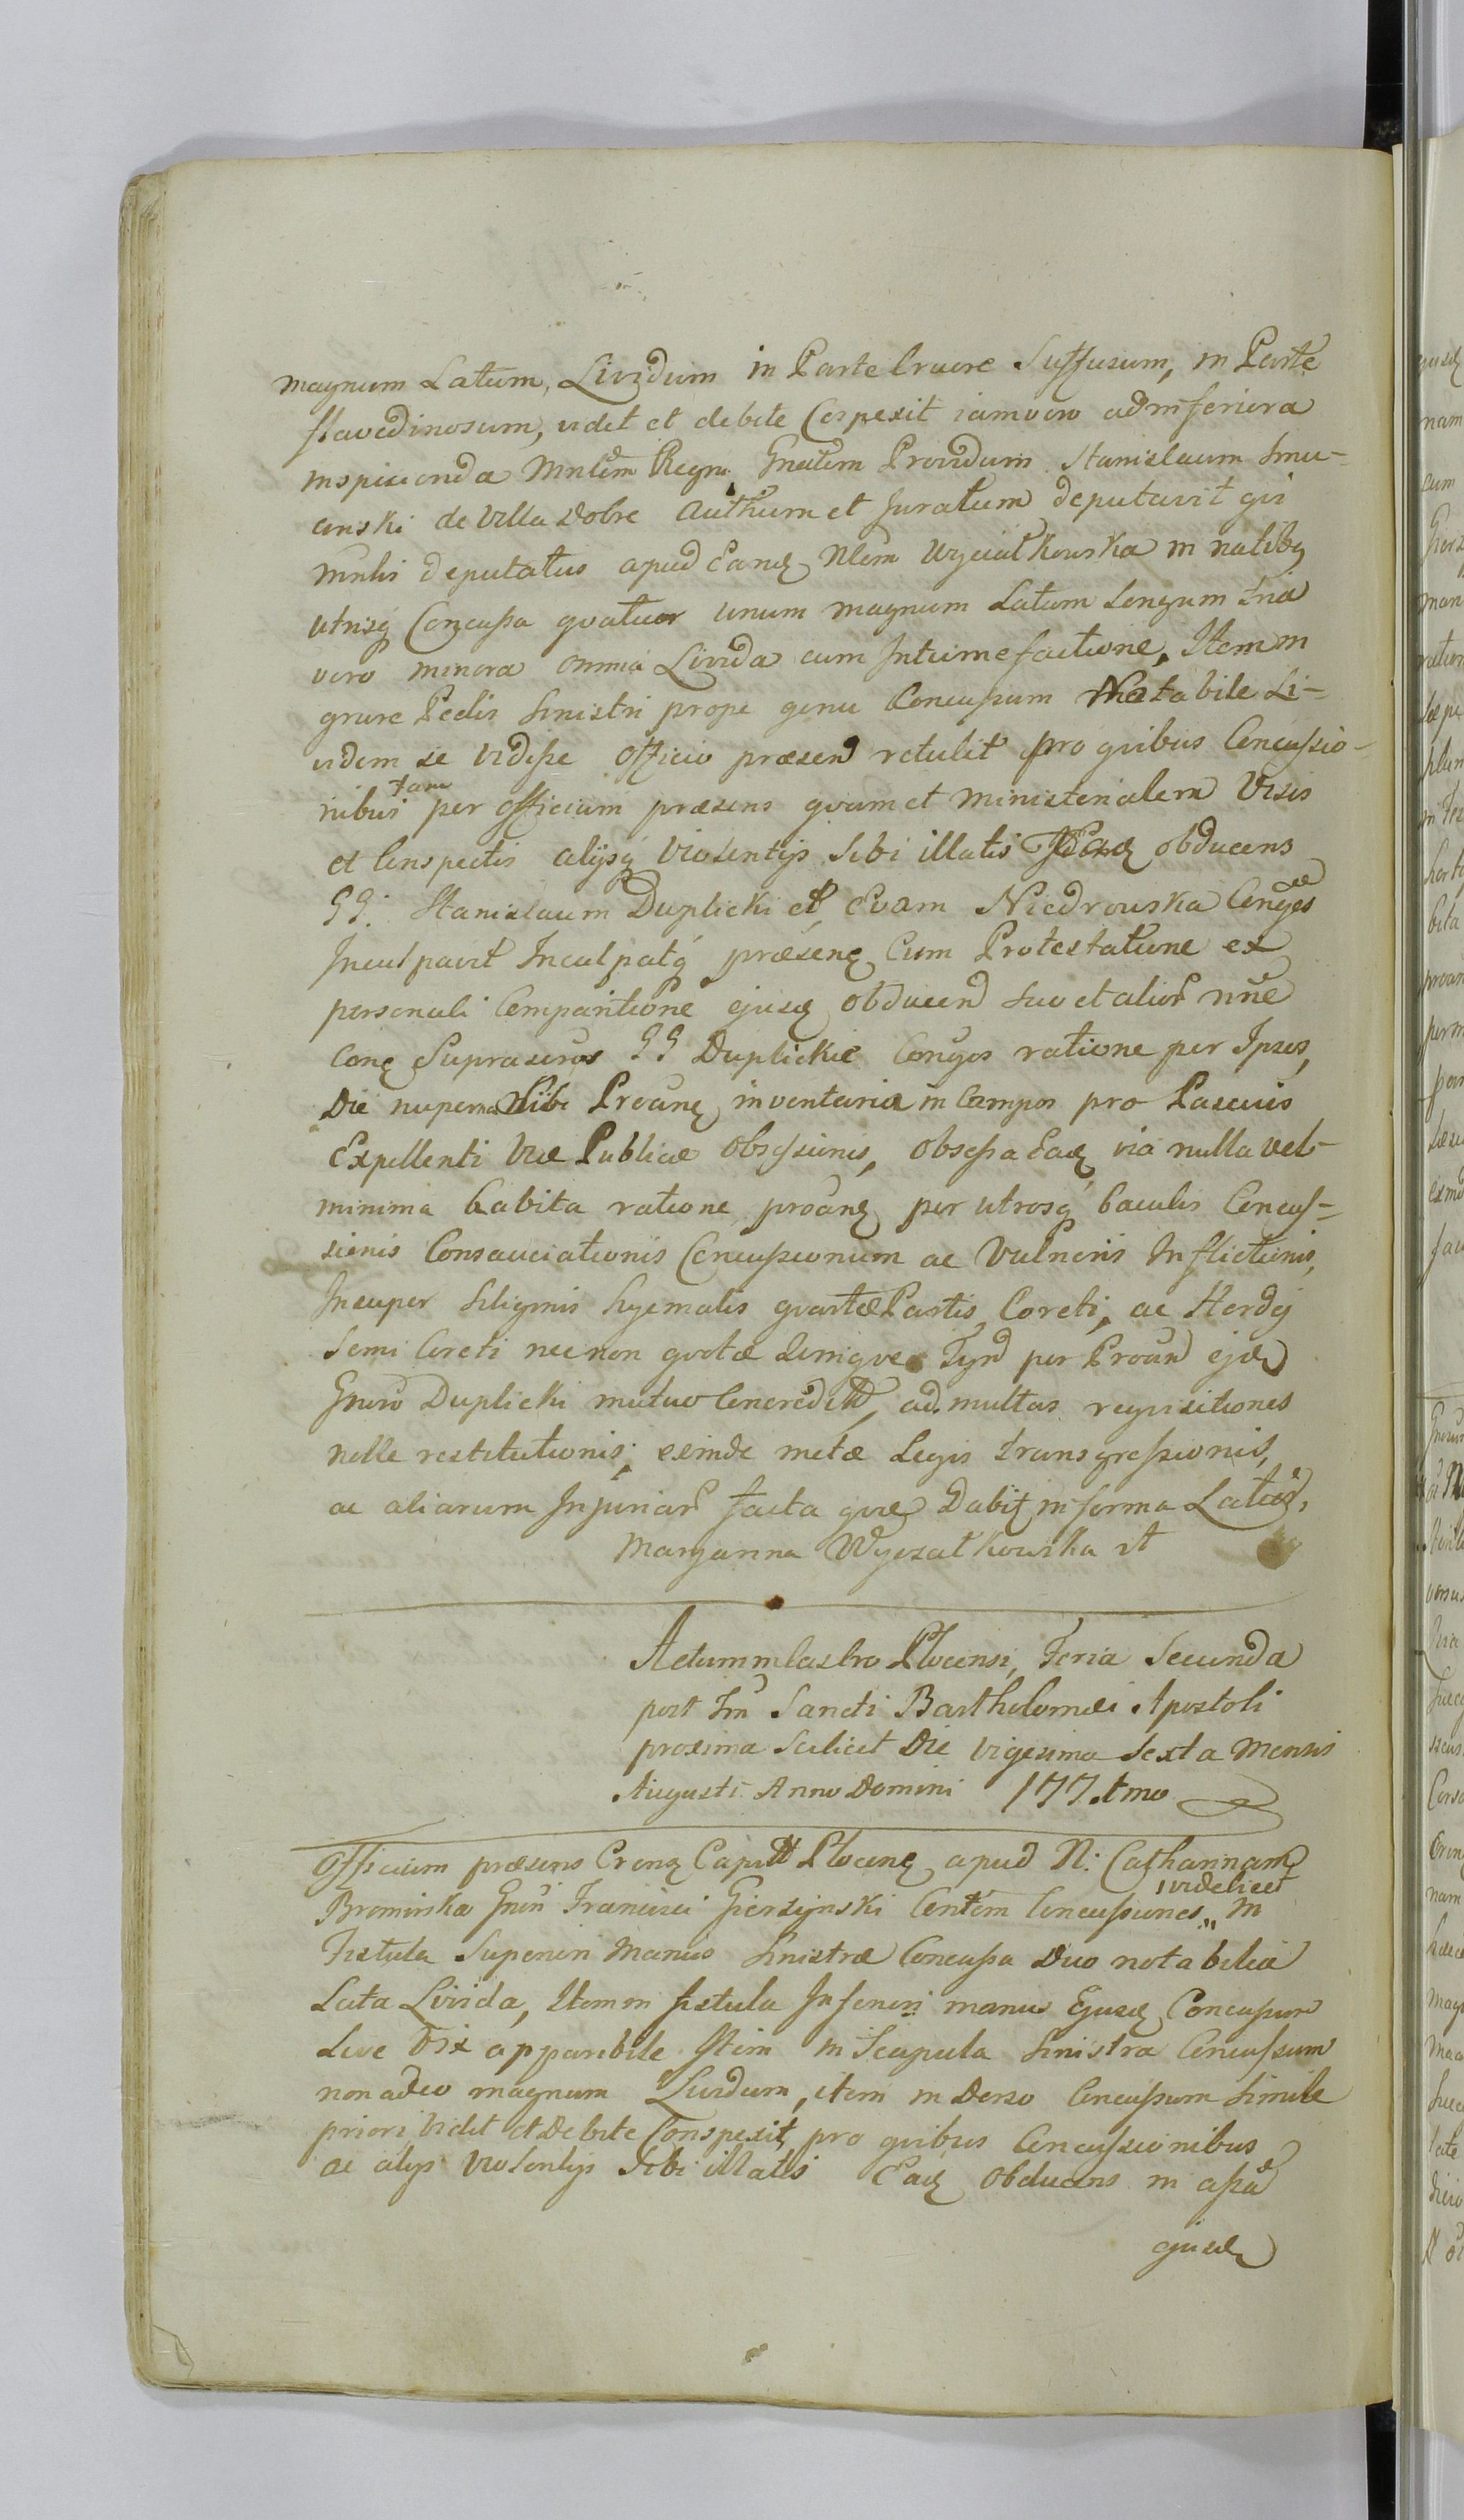 magnum Latum, Lividum in Parte Cruore Suffusum, in Parte
flavedinosum, videt et debite Cospexit iamvero ad inferiora
inspicienda Mnlem Regni Gnalem Providum Stanislaum Smu-
anski de Villa Dobre Authum et Juratum deputavit qui
Mnlis deputatus apud Eandę Nlem Wyciatkowska in natibq
utrisq Concussa quatuor unum magnum Latum Longum tria
vero minora omnia Livida cum Intumefactione, Item in
grure Pedis Sinistri prope genu Concussum Notabile Li-
videm se vidisse Officio præsenđ retulit pro quibus Concussio-
nibus tam per Officium præsens quam et ministerialem Visis
et Conspectis alijsq violentijs Sibi illatis Eadę obducens
GG: Stanislaum Duplicki et Evam Niedrowska Conges
Inculpavit Inculpatq præsenę Cum Protestatione ex
personali Comparitione ejusdę obducenđ suo et alior nne
Conę Suprascrips GG Duplickie Conges ratione per Ipsos,
Die nupera Sibi Proanę inventaria in Campos pro Pascuis
Expellenti Viæ Publicæ obsessionis, obsessa Eadę via nulla vel
minima habita ratione proanę per utrosq baculis Concus-
sionis Consauciationis Concussionum ac Vulneris Inflictionis,
Insuper Siliginis hyemalis quartæ Partis Coreti, ac Hordej
Semi Coreti nec non quotæ denique Tynđ per Proanđ ejdę
Gnero Duplicki mutuo Concredittđ, ad multas requisitiones
nolle restitutionis; exinde metæ Legis transgressionis,
ac aliarum Injuriarˀ facta quæ Dabit in forma Latiorˀ,
Maryanna Wyczatkowska it
Actum in Castro Plocensi, Feria Secunda
post Fm Sancti Bartholomæi Apostoli
proxima Scilicet Die vigesima Sexta Mensis
Augusti Anno Domini 177.tmo
Officium præsens Crenę Capittł Plocenę apud N: Catharinam
Brominska Gnri Francisci Gierzynski Contem Concussiones videlicet in
Fistula Superiori Manus Sinistræ Concussa Duo notabilia
Lata Livida, Item in fistula Inferiori manus Ejusdę Concussum
Leve Vix apparibile Item in Scapula Sinistra Concussum
non adeo magnum Lividum, item in Dorso Concussum Simile
priori Videt et Debite Conspexit, pro quibus Concussionibus
ac alijs violentijs Sibi illatis Eadę obducens in assa
ejusdę